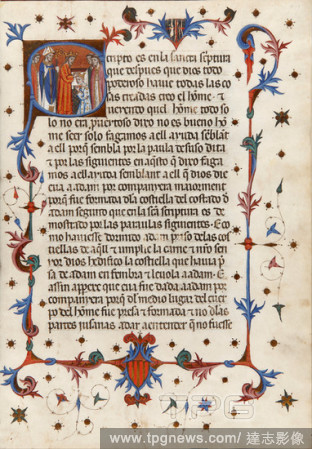 cripto es en la sancta sc͂ptura
que despues que dios todo
poderoso hauie todas las co
sas criadas creo el hōme · ⁊
ueyendo quel hōme todo so
lo no era puertoso diro no es bueno hō
me seer solo fagamos a ell ayuda sēblāt
a ell por q̄ senbla por la paula desuso dita
⁊ por las siguientes en aq̄sto q̄ diro faga
mos a ell ayuda senblant a ell q̄ dios die
eua a adam por companyera maiorment
porq̄ fue formada dla costiella del costado d̄
adam segunt que en la sc̄a scriptura es de
mostrado por las paraulas siguientes · E co
mo hauiesse dormido adam priso de las cos
tiellas de aq̄ll ⁊ umplie la carne ⁊ nr̄o sen
yor dios hedifico la costiella que hauia p̄
sa de adam en fembra ⁊ leuola a adam · E
assin apere que eua fue dada a adam por
companyera porq̄ dl medio lugar del cuer
po del hōme fue presa ⁊ formada ⁊ no dlas
partes jusanas adar a entender q̄ no fuesse
TPG
www.tpgnews.com/達志影像